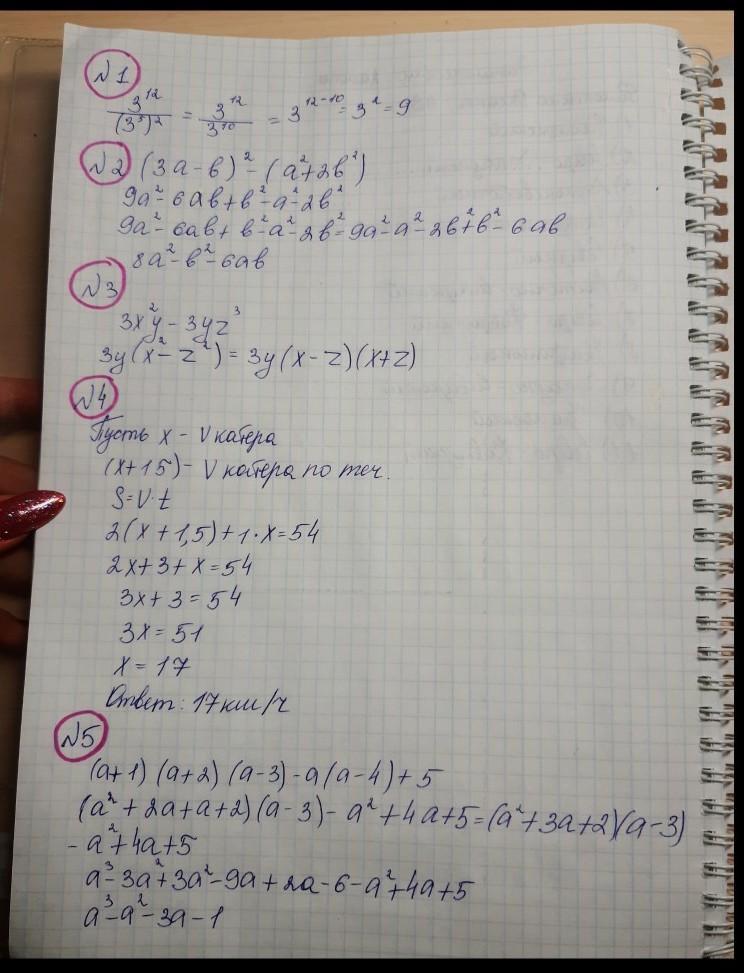 №1
3^12/(3^5)^2 = 3^12/3^10 = 3^12-10 = 3^2 = 9
№2 (3a-b)^2-(a^2+2b^2)
9a^2-6ab+b^2-a^2-2b^2
9a^2-6ab+b^2-a^2-2b^2=9a^2-a^2-2b^2+b^2-6ab
8a^2-b^2-6ab
№3
3x^2y-3yz^3
3y(x^2-z^2)=3y(x-z)(x+z)
№4
Пусть x - V катера
(x+15)- V катера по теч.
S=V·t
2(x+1,5)+1·x=54
2x+3+x=54
3x+3=54
3x=51
x=17
Ответ: 17км/ч
№5
(a+1)(a+2)(a-3)-a(a-4)+5
(a^2+2a+a+2)(a-3)-a^2+4a+5=(a^2+3a+2)(a-3)
-a^2+4a+5
a^3-3a^2+3a^2-9a+2a-6-a^2+4a+5
a^3-a^2-3a-1